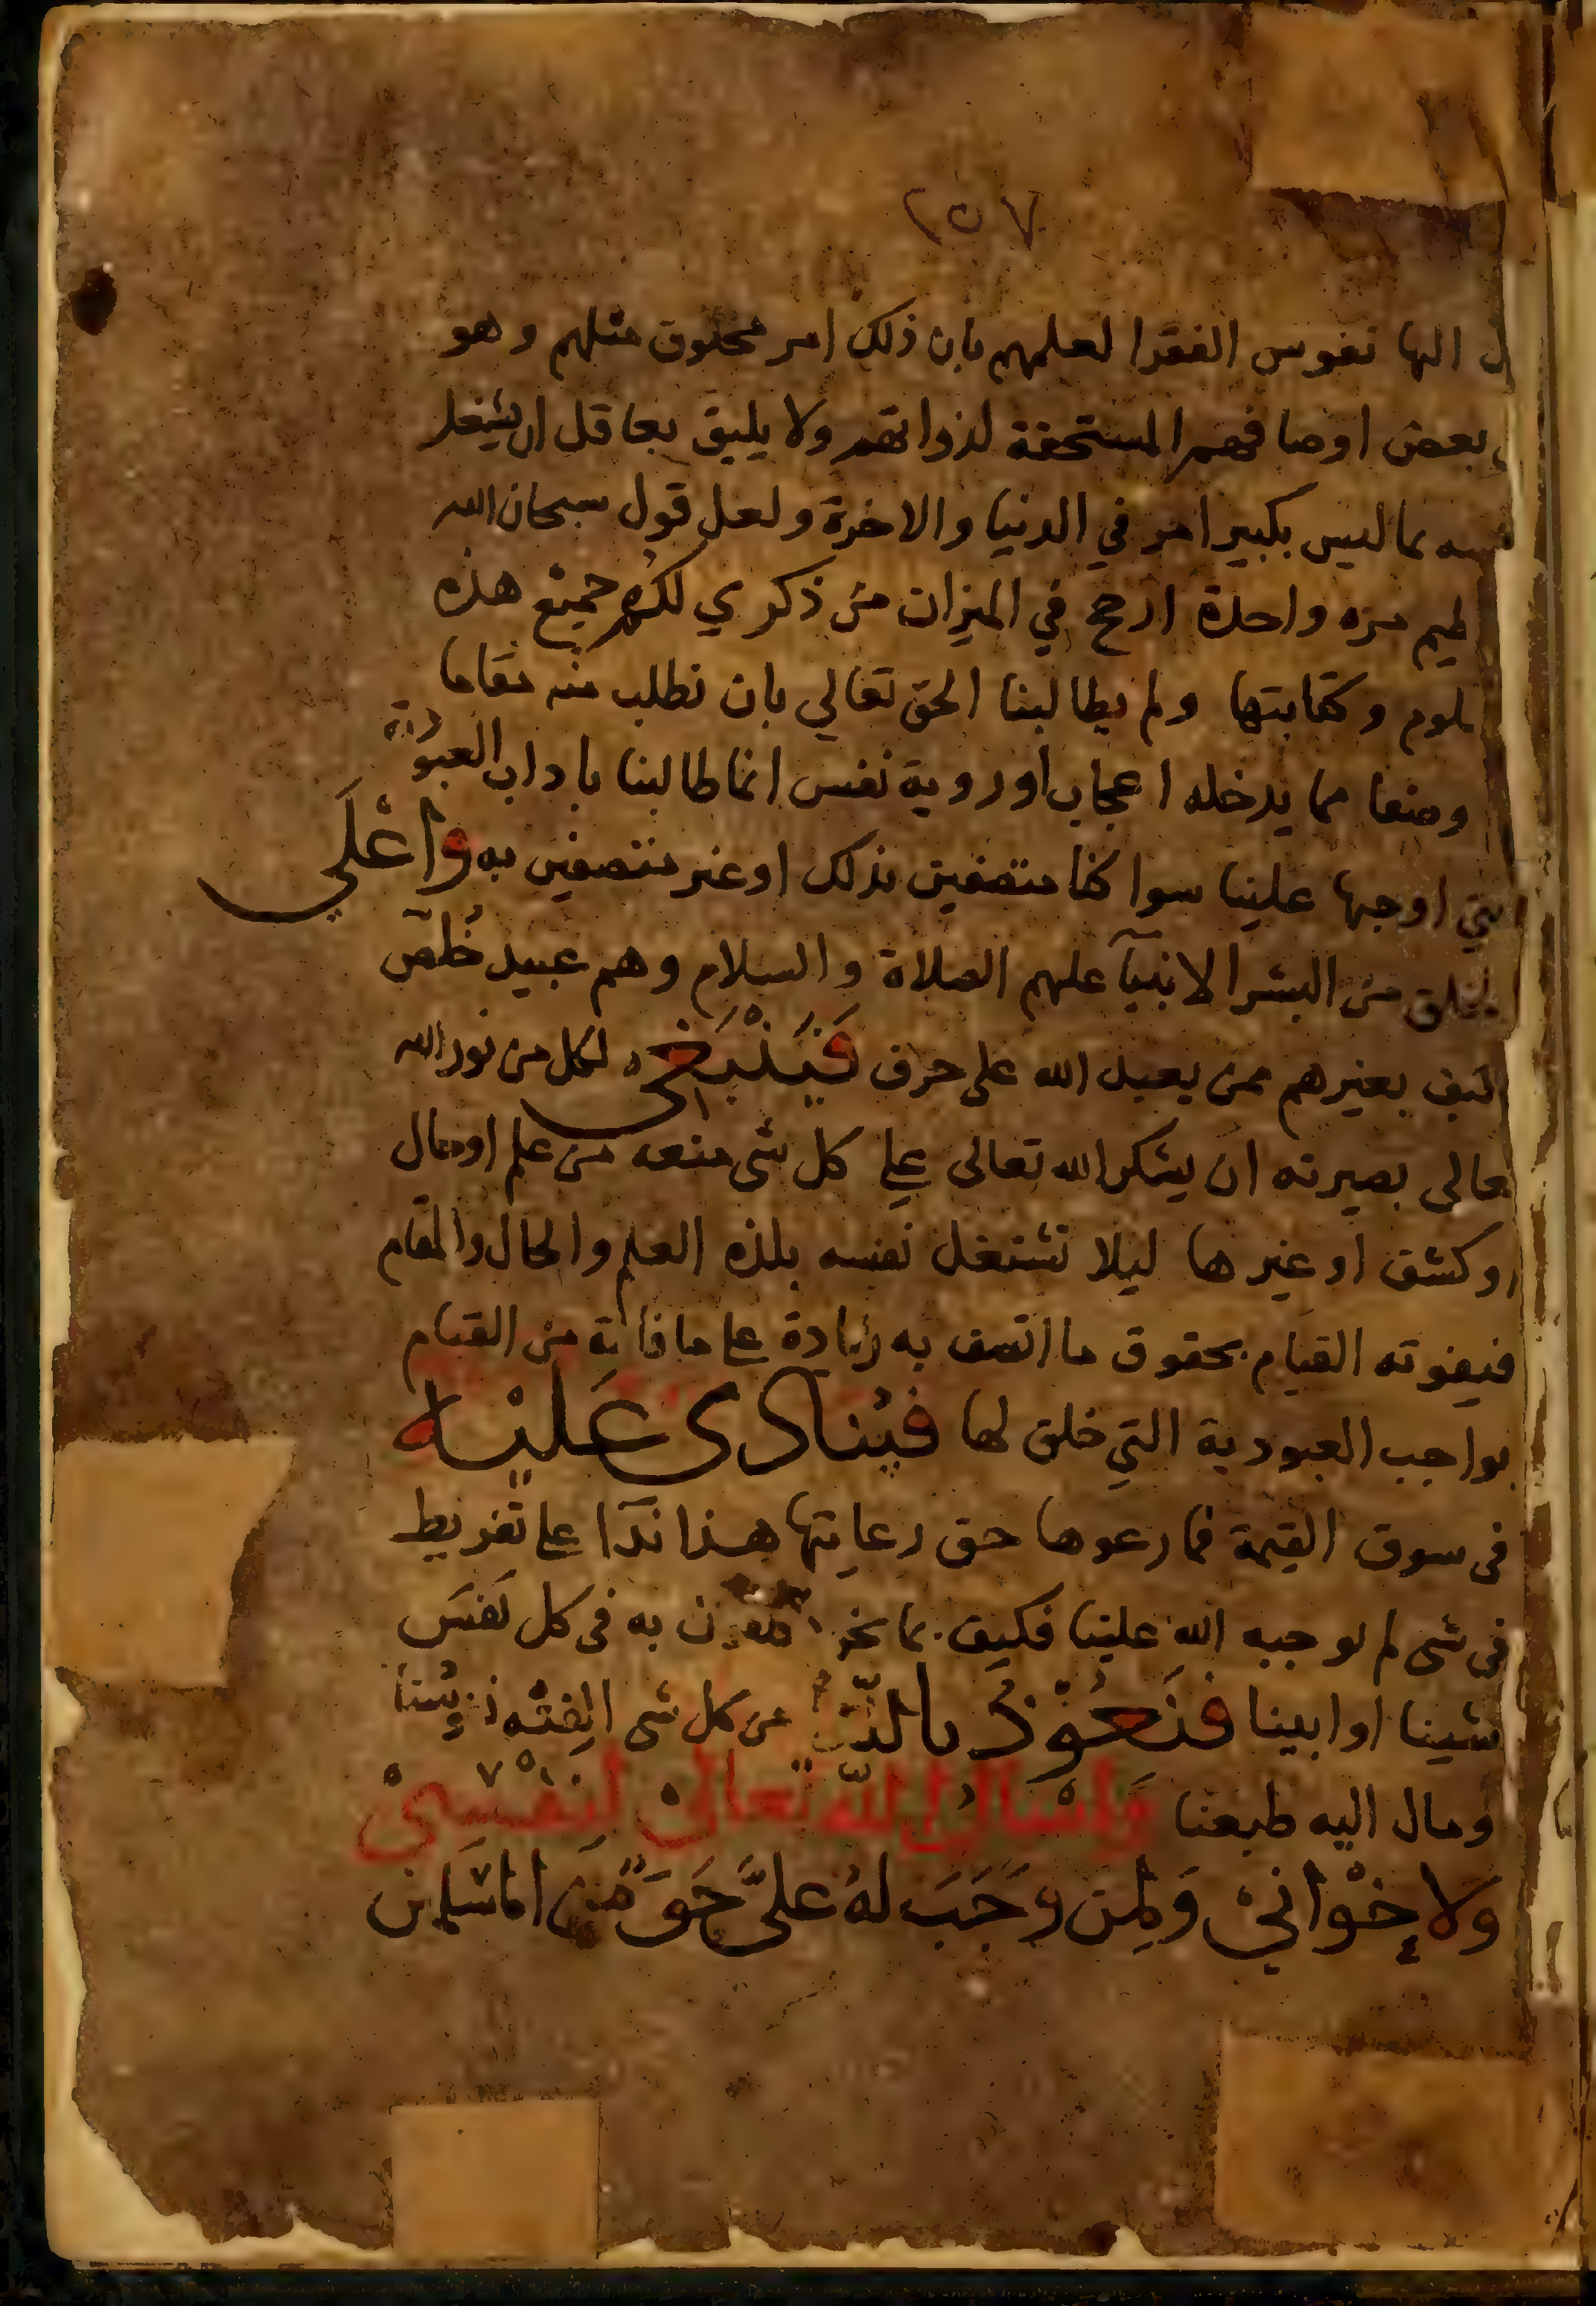 ٢٥٧
اليها نفوس الفقرا لعلمهم بان ذلك امر مخلوق مثلهم وهو
بعض اوصافهم المستحقة لذواتهم ولا يليق بعاقل ان يشغل
بما ليس بكبير امر في الدنيا والاخرة ولعل قول سبحان الله
مرة واحدة ارجح في الميزان من ذكري لكم جميع هذه
وكتابتها ولم يطالبنا الحق تعالي بان نطلب منه مقاما
وصفا مما يدخله اعجاب او روية نفس انما طالبنا باداب العبودية
التي اوجبها علينا سوا كنا متصفين بذلك او غير متصفين به واعلى
الخلق من البشر الانبيآ عليهم الصلاة والسلام وهم عبيد خلّص
فكيف بغيرهم ممن يعبد الله على حرف فينبغي لكل من نور الله
تعالى بصيرته ان يشكر الله تعالى على كل شى منعه من علم او حال
او كشف او غيرها ليلا تشتغل نفسه بلذه العلم والحال والمقام
فيفوته القيام بحقوق ما اتصف به زيادة على ما فاته من القيام
بواجب العبودية التي خلق لها فينادى عليه
فى سوق القيمة فما رعوها حق رعايتها هذا ندآ على تفريط
فى شى لم يوجبه الله علينا فكيف بما نحن به فى كل نفس
شينا او ابينا فنعوذ بالله من كل شى الفته نفوسنا
ومال اليه طبعنا واسال الله تعالى لنفسى
ولاخواني ولمن وجب له علىّ حق من المسلمين